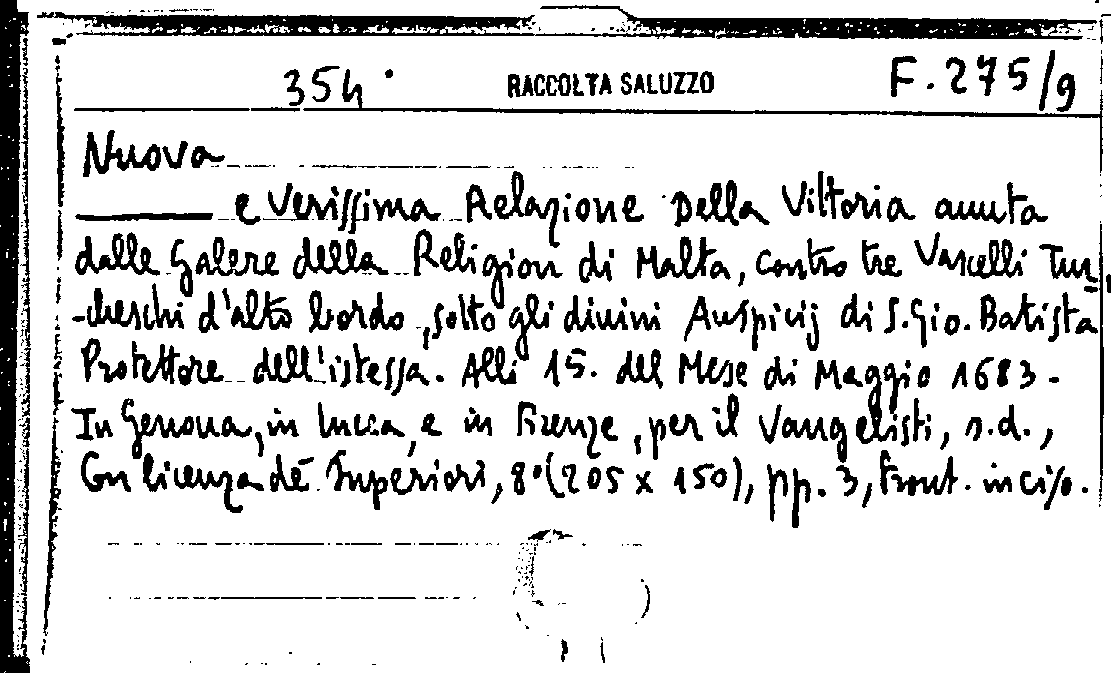 354° RACCOLTA SALUZZO F.275/9
Nuova
e Verissima Relazione Della Vittoria auuta
dalle Galere della Religion di Malta, contro tre Vascelli Tur
-cheschi d'alto bordo, sotto gli diuini Auspicij di S. Gio. Batista
Protettore dell'istessa. Alli 15. del Mese di Maggio 1683.
In Genoua, in Lucca, e in Firenze, per il Vangelisti, s.d.,
Con licenza de' Superiori, 8° (205 x 150), pp. 3, front. inciso.